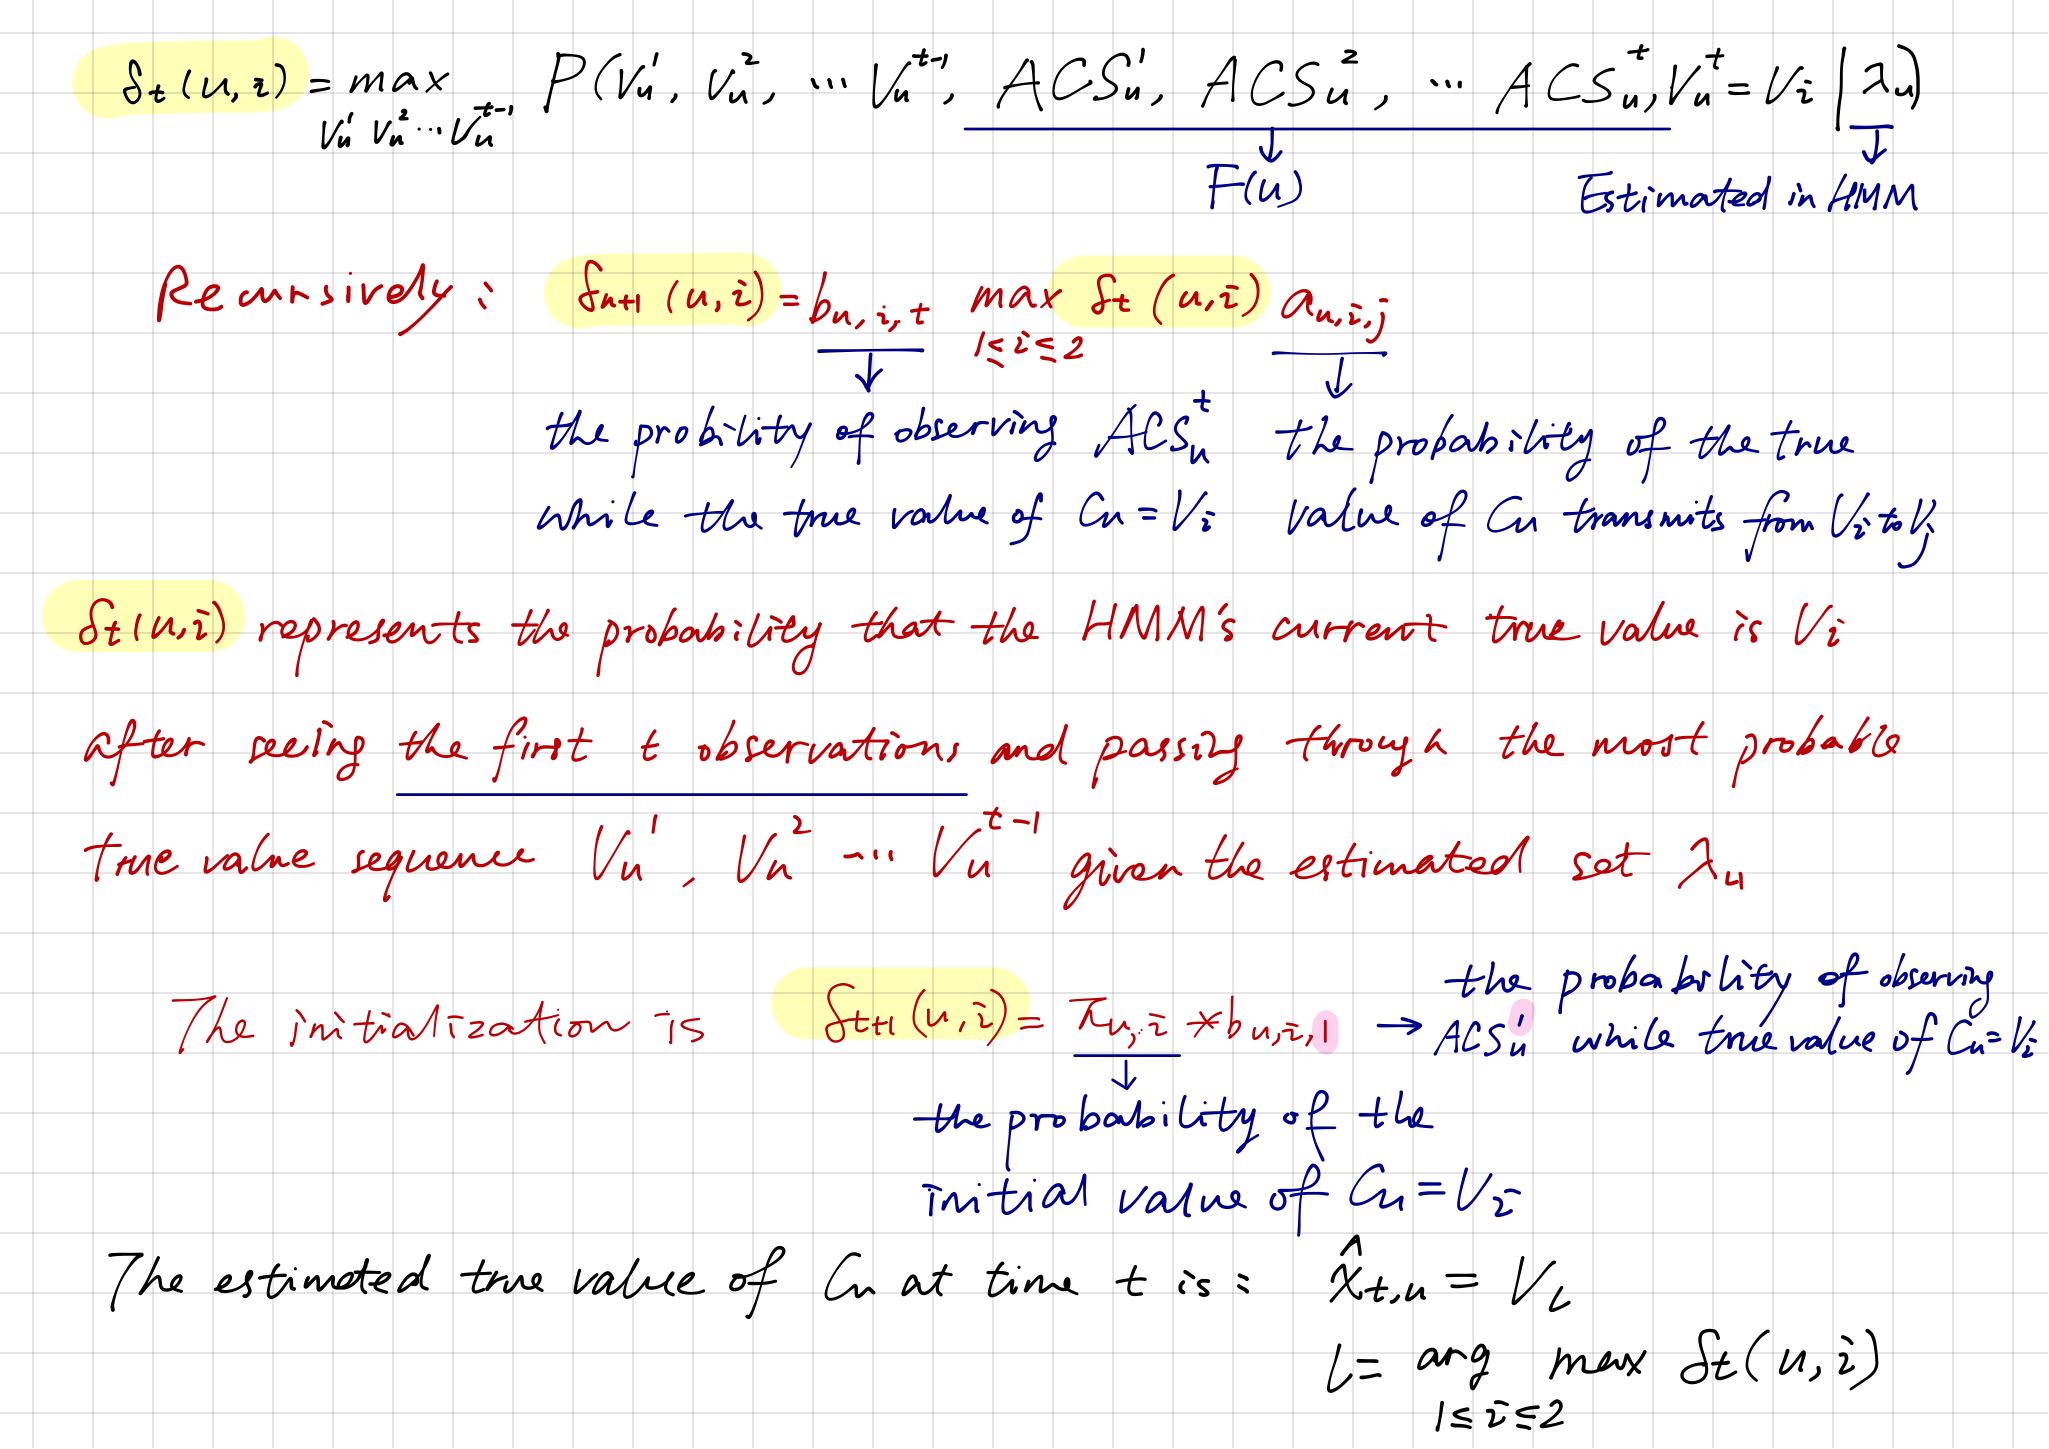 δt(u,i) = max P(Vu^1, Vu^2, ... Vu^t-1, ACSu^1, ACSu^2, ... ACSu^t, Vu^t = Vi | λu)
Vu^1 Vu^2 ... Vu^t-1
↓ ↓
F(u) Estimated in HMM
Recursively: δn+1 (u,i) = bu,i,t max δt (u,i) au,i,j
1≤i≤2
↓ ↓
the probility of observing ACSu^t
while the true value of Cu = Vi
the probability of the true
value of Cu transmits from Vi to Vj
δt(u,i) represents the probability that the HMM's current true value is Vi
after seeing the first t observations and passing through the most probable
true value sequence Vu^1, Vu^2 ... Vu^t-1 given the estimated set λu
The initialization is δt+1 (u,i) = πu,i * bu,i,1 → the probability of observing
ACSu^1 while true value of Cu = Vi
↓
the probability of the
initial value of Cu = Vi
The estimated true value of Cu at time t is: x̂t,u = Vl
l = arg max δt(u,i)
1≤i≤2